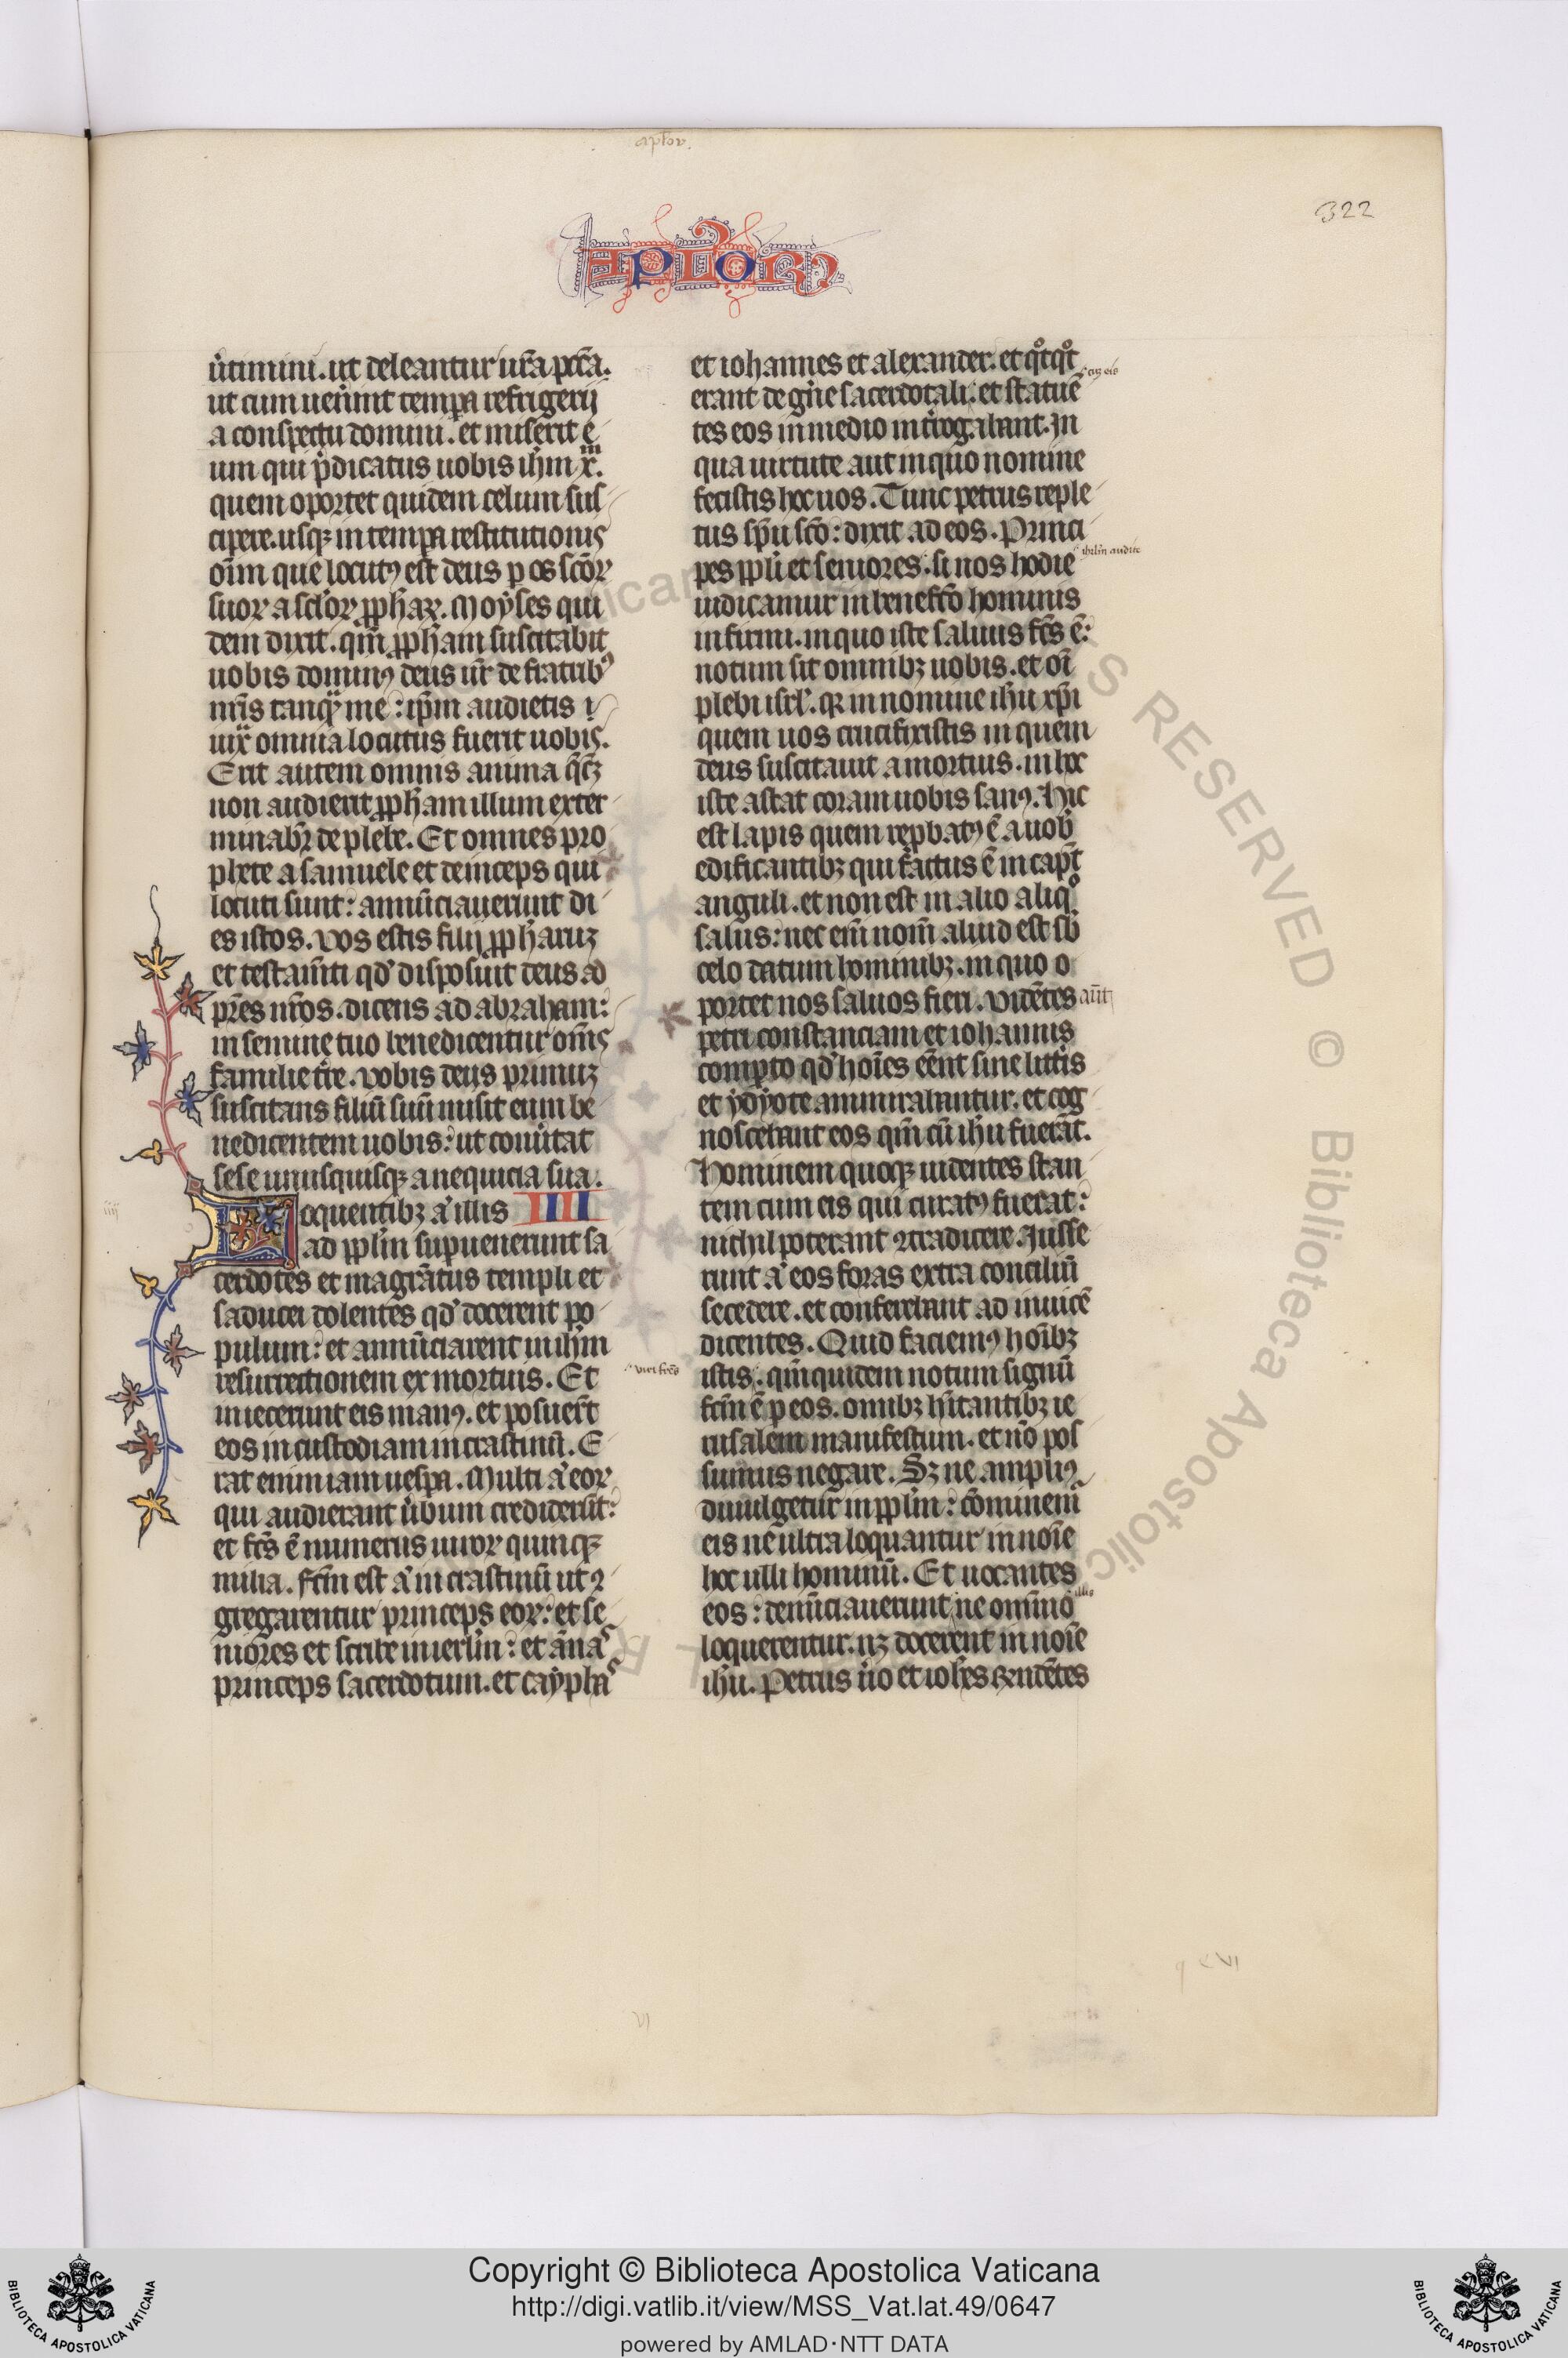 aplor.
322
Aplorum
u᷒timini. ut deleantur ur̄a pcc̄a.
ut cum uen̄int temꝑa refrigerij
a conspectu domini. et miserit e
um qui p̄dicatus uobis ih̄m xm̄.
quem oportet quidem celum sus
cipere. usqꝫ in temꝑa restitutionis
oīm que locutꝰ est deus ꝑ os sc̄oꝝ
suoꝝ a scl̄oꝝ ꝓph̄aꝝ. Moẏses qui
dem dixit. qm̄ ꝓph̄am suscitabit
uobis dominꝰ deus ur̄ de fratribꝰ
nr̄is tanqͣ me: ip̄m audietis i
uix̄ omnia locutus fuerit uobis.
Erit autem omnis anima q̄cꝫ
non audierit ꝓph̄am illum exter
minabr̄ de plebe. Et omnes pro
phete a samuele et deinceps qui
locuti sunt: annūciauerunt di
es istos. Vos estis filij ꝓph̄aruꝫ
et testam̄ti qd̓ disposuit deus ad
pr̄es nr̄os. dicens ad abraham:
in semine tuo benedicentur om̄s
familie tr̄e. Vobis deus primuꝫ
suscitans filiū suū misit eum be
nedicentem uobis: ut conu᷒tat
sese unusquisqꝫ a nequicia sua.
Loquentibꝫ a̓ illis IIII
ad ppl̄m suꝑuenerunt sa
cerdotes et magr̄atus templi et
saducei dolentes qd̓ docerent po
pulum: et annūciarent in ih̄m
resurrectionem ex mortuis. Et
iniecerunt eis manꝰ. et posuer̄t
eos in custodiam in crastinū. E
rat enim iam uesꝑa. Multi a̓ eoꝝ
qui audierant u᷒bum crediderūt:
et fc̄s ē numerus uiroꝝ quinqꝫ
milia. Fcm̄ est a̓ in crastinū ut ꝯ
gregarentur princeps eoꝝ: et se
niores et scribe in ierl̄m: et ānas
princeps sacerdotum. et caẏphas
et iohannes et alexander. et qͦtqͦt
erant de gn̄e sacerdotali: et statuē
tes eos in medio int̄rogabant. In
qua uirtute aut in quo nomine
fecistis hoc uos. Tunc petrus reple
tus sp̄u sc̄o: dixit ad eos. Princi
pes ppl̄i et seniores. si nos hodie
ihrlm̄ audite
iudicamur in benefc̄o hominis
infirmi. in quo iste saluus fc̄s ē:
notum sit omnibꝫ uobis. et oī
plebi isrl̓. qꝛ in nomine ih̄u xp̄i
quem uos crucifixistis in quem
deus suscitauit a mortuis. in hoc
iste astat coram uobis sanꝰ. Hic
est lapis quem reꝓbatꝰ ē a uob̄
edificantibꝫ qui factus ē in capt̄
anguli. et non est in alio aliqͦ
salus: nec em̄ nom̄ aliud est sb̄
celo datum hominibꝫ. in quo o
portet nos saluos fieri. Vidētes aūt
petri constanciam et iohannis
comꝑto qd̓ hoīes eēnt sine litt̄is
et ẏdẏote ammirabantur. et cog
noscebant eos qm̄ cū ih̄u fuerāt.
Hominem quoqꝫ uidentes stan
tem cum eis qui curatꝰ fuerat:
nichil poterant ꝯtradicere. Iusse
runt a̓ eos foras extra conciliū
secedere. et conferebant ad inuicē
dicentes. Quid faciemꝰ hoībꝫ
istis. qm̄ quidem notum signū
viri frēs
fcm̄ ē ꝑ eos. omībꝫ hītantibꝫ ie
rusalem manifestum. et nō pos
sumus negare. Sꝫ ne amplius
diuulgetur in ppl̄m: cōminem̄
eis ne ultra loquantur in noīe
hoc ulli hominū. Et uocantes
eos: denūciauerunt ne omīno
illis
loquerentur. nꝫ docerent in noīe
ih̄u. Petrus u᷒o et ioh̄es rn̄dētes
IIII
VI
Copyright © Biblioteca Apostolica Vaticana
http://digi.vatlib.it/view/MSS_Vat.lat.49/0647
powered by AMLAD·NTT DATA
BIBLIOTECA APOSTOLICA VATICANA
BIBLIOTECA APOSTOLICA VATICANA